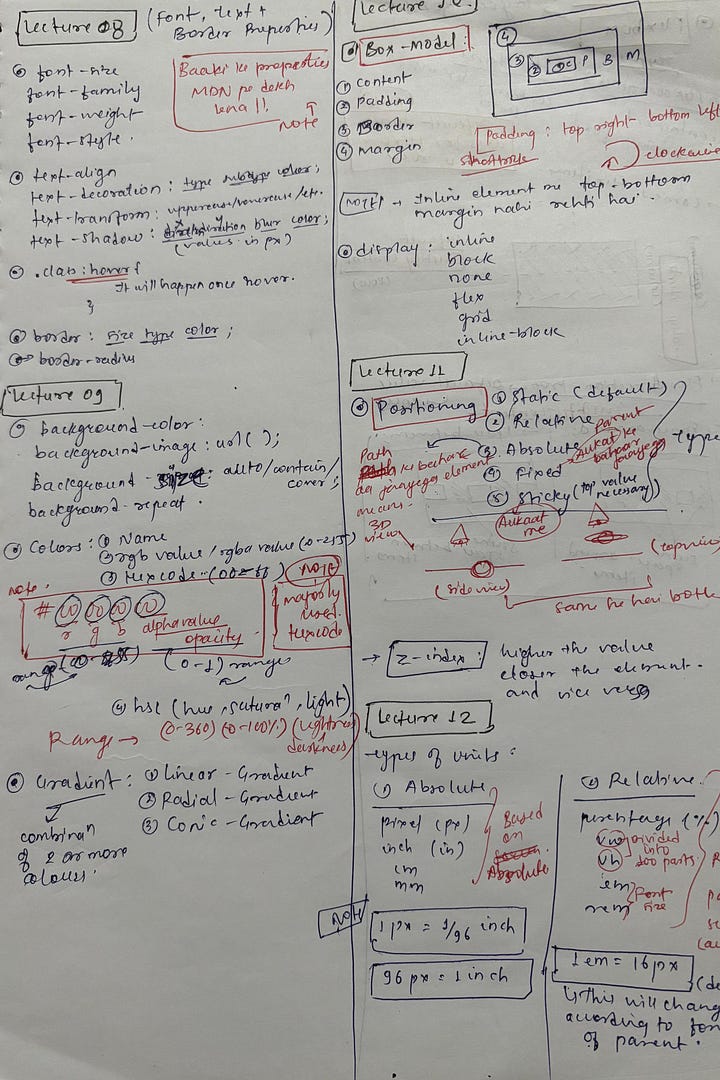 Lecture 08 (font, text +
Border Properties)
font-size
font-family
font-weight
font-style.
Baaki ke properties
MDN pe dekh
lena !!
NOTE
text-align
text-decoration : type color;
text-transform : uppercase/lowercase/etc.
text-shadow : blur color;
(values in px)
.class:hover{
It will happen once hover.
}
border: size type color ;
border-radius
Lecture 09
background-color:
background-image : url( );
background-size: auto/contain/
cover;
background-repeat.
Colors: ① Name
② rgb value / rgba value (0-255)
③ Hexcode
note.
NOTE
majorly
used
Hexcode
#
r g b alpha value
opacity
range
(0-1) range
④ hsl (hue, saturaⁿ, light)
Range → (0-360) (0-100%) (lightness
darkness)
Gradient : ① Linear-Gradient
② Radial-Gradient
③ Conic-Gradient
combinaⁿ
of 2 or more
colours.
Lecture
Box-model:
④ ③ ② ① C P B M
① Content
② Padding
③ Border
④ Margin
Padding : top right bottom left
clockwise
NOTE → Inline element me top-bottom
margin nahi rehti hai.
display : inline
block
none
flex
grid
inline-block
Lecture 11
Positioning
① Static (default)
② Relative
③ Absolute
④ Fixed
⑤ Sticky (top value
necessary)
type
Parent
Aukat ke
bahaar
jaayega
Path
ke bahar
aa jaayega element
means.
3D
view
Aukaat
me
(side view)
(top view
same he hai both
→ Z-index: higher the value
closer the element.
and vice versa
Lecture 12
types of units :
① Absolute
pixel (px)
inch (in)
cm
mm
Based
on
Absolute
② Relative
percentage (%)
vw
vh
divided
into
100 parts
em
rem
Font
size
Note
1 px = 1/96 inch
96 px = 1 inch
1 em = 16px
This will change
according to
of parent.